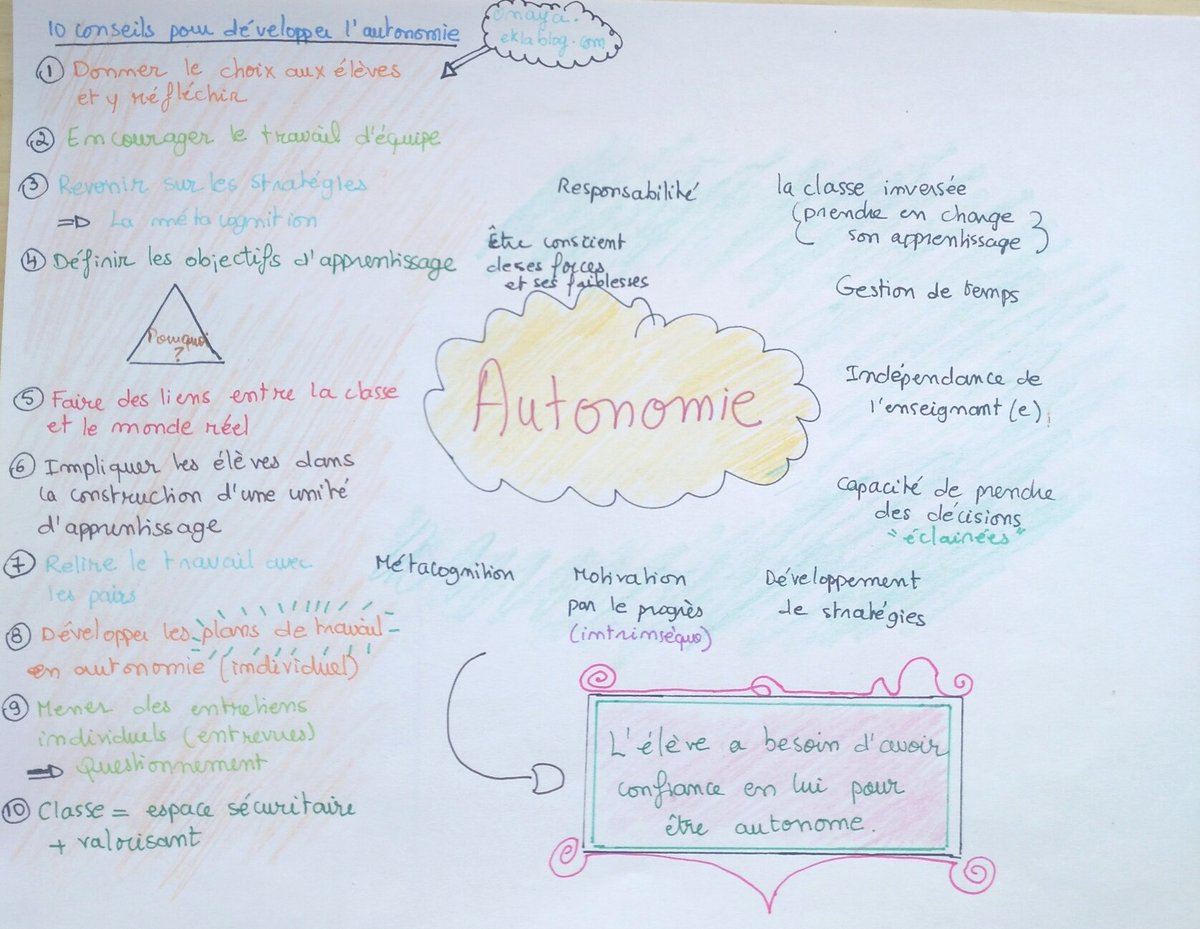 10 conseils pour développer l'autonomie
onaya.
eklablog.com
① Donner le choix aux élèves
et y réfléchir
② Encourager le travail d'équipe
③ Revenir sur les stratégies
=> La métacognition
④ Définir les objectifs d'apprentissage
Pourquoi
?
⑤ Faire des liens entre la classe
et le monde réel
⑥ Impliquer les élèves dans
la construction d'une unité
d'apprentissage
⑦ Relire le travail avec
les pairs
⑧ Développer les plans de travail
en autonomie (individuel)
⑨ Mener des entretiens
individuels (entrevues)
=> Questionnement
⑩ Classe = espace sécuritaire
+ valorisant
Responsabilité
la classe inversée
(prendre en charge
son apprentissage)
Être conscient
de ses forces
et ses faiblesses
Gestion de temps
Autonomie
Indépendance de
l'enseignant(e)
Capacité de prendre
des décisions
"éclairées"
Métacognition
Motivation
par le progrès
(intrinsèque)
Développement
de stratégies
L'élève a besoin d'avoir
confiance en lui pour
être autonome.